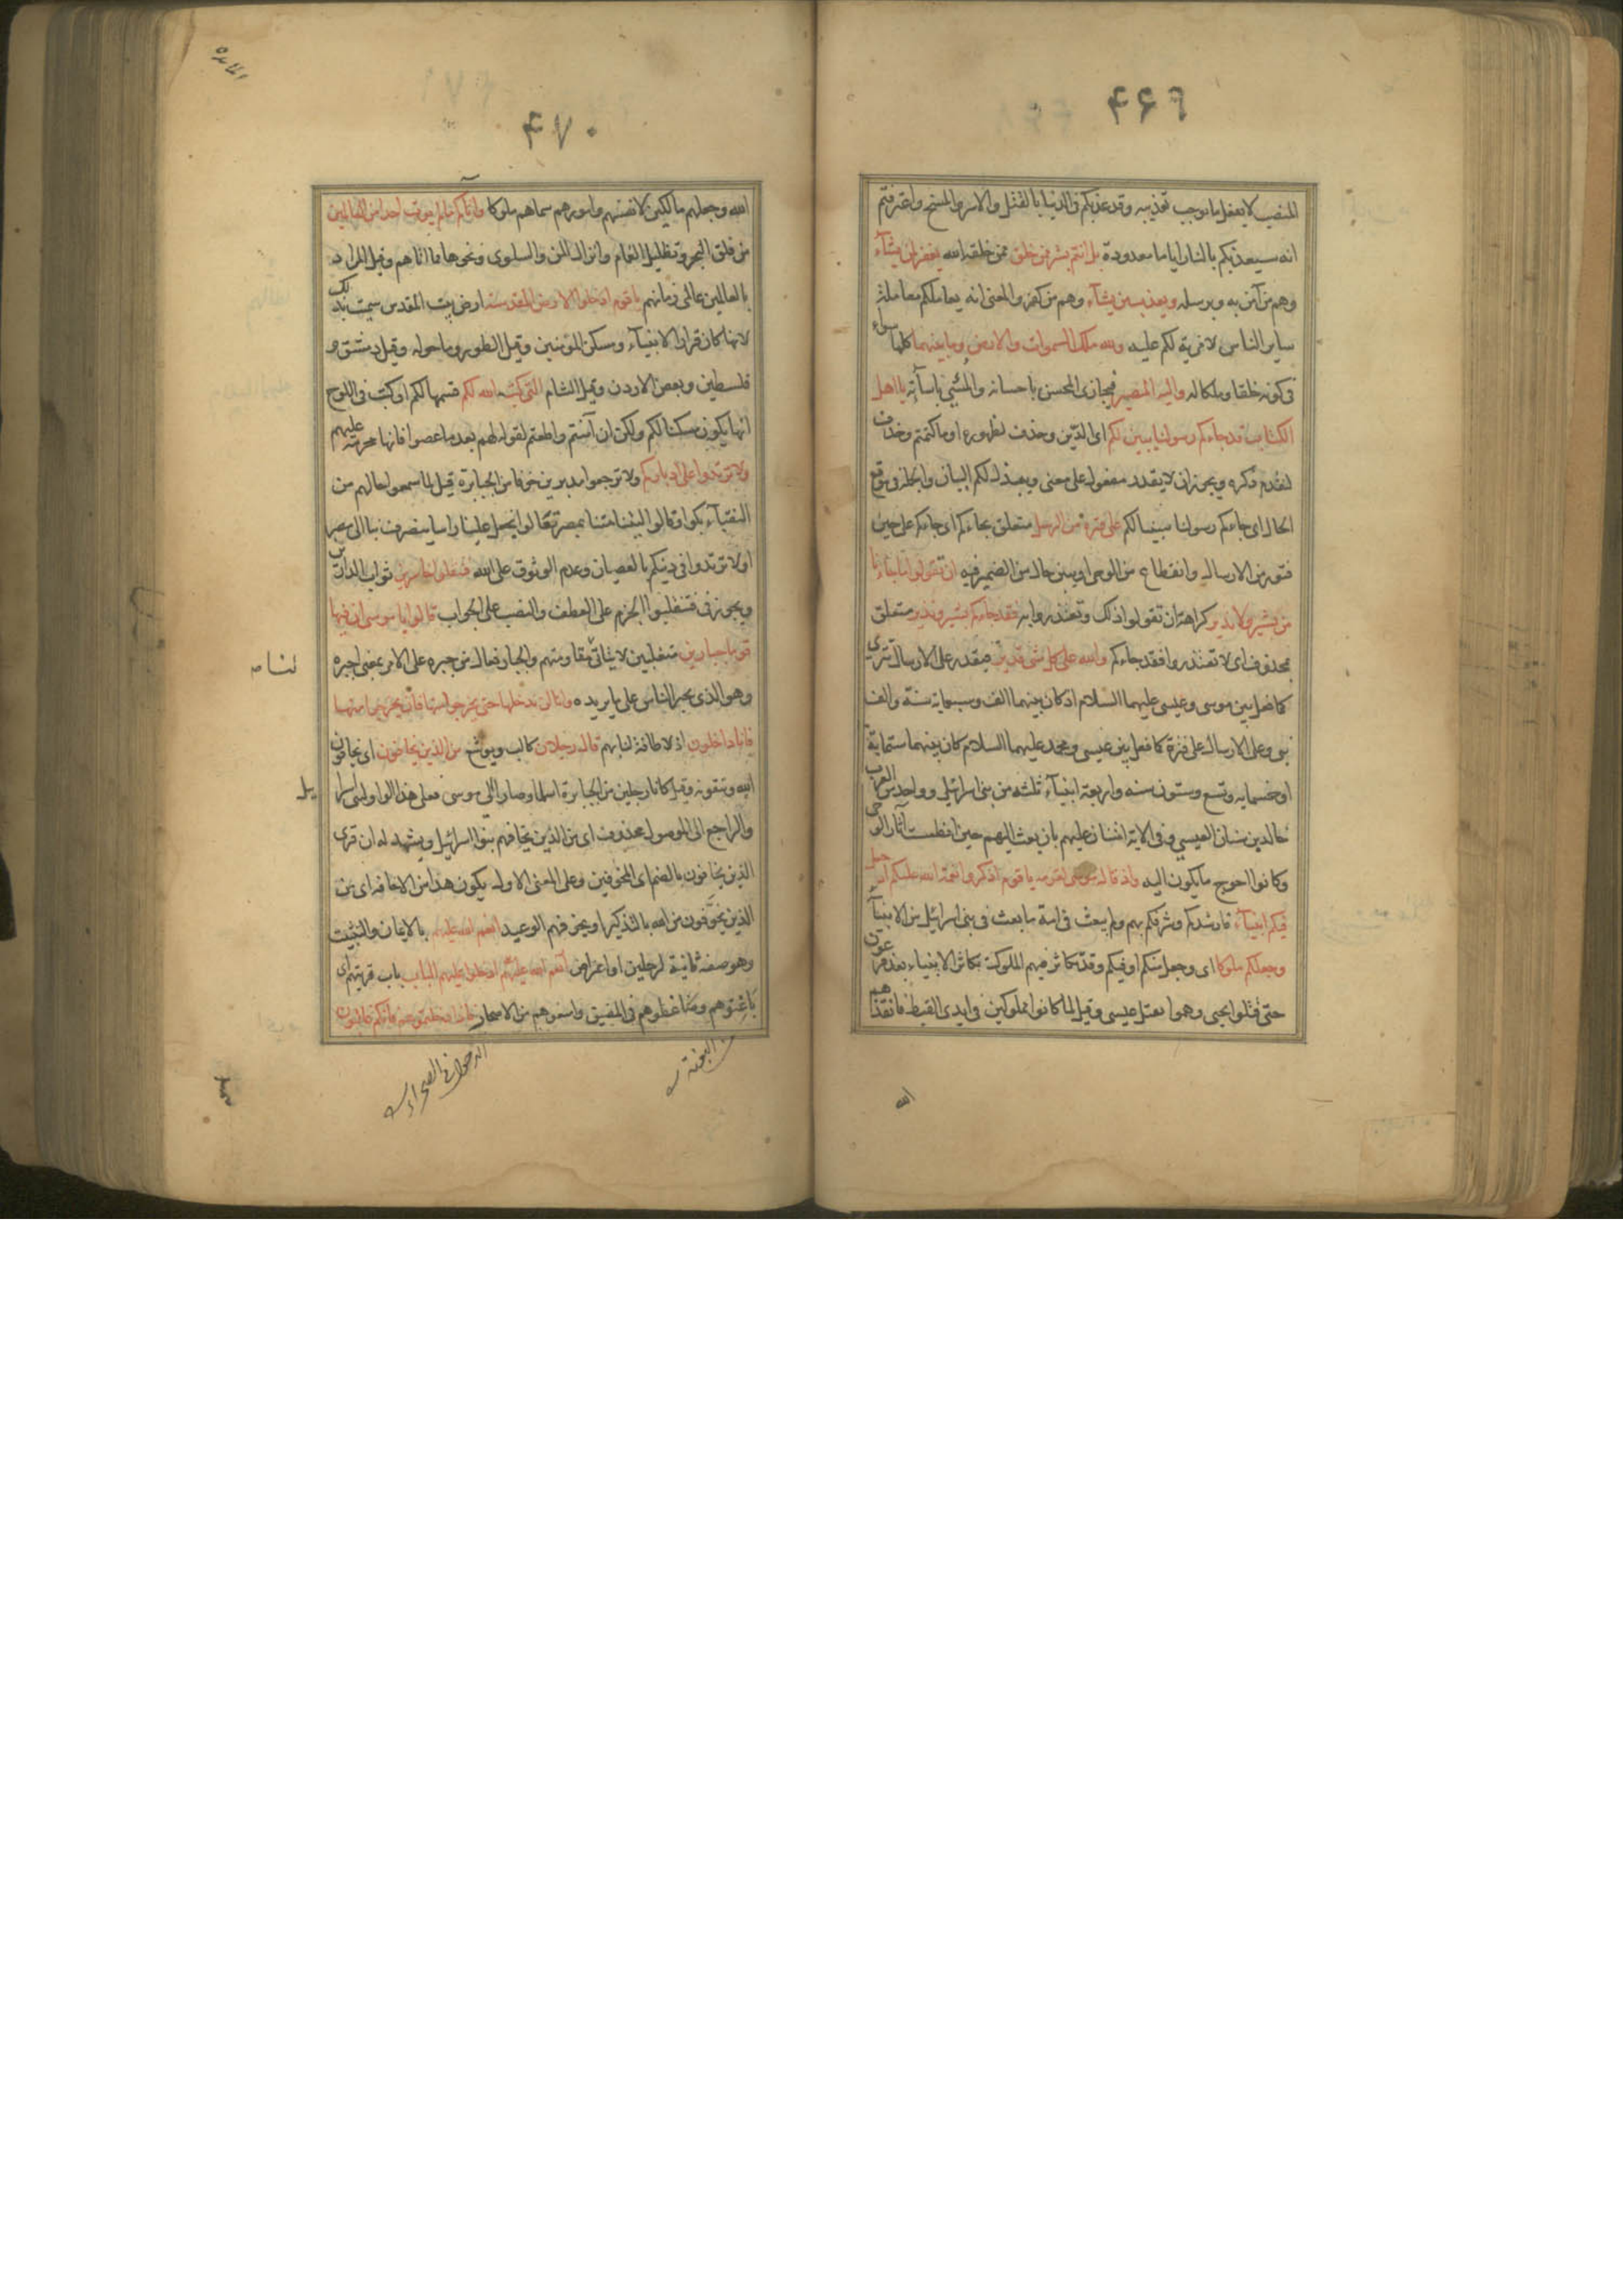 ۴۶۹
المنصب لا يفعل ما يوجب تعذيبه وقد عذبكم فى الدنيا بالقتل والاسر والمسخ واعترفتم
انه سيعذبكم بالنار اياما معدودة بل انتم بشر ممن خلق ممن خلقه الله يغفر لمن يشآء
وهم من آمن به وبرسله ويعذب من يشآء وهم من كفر والمعنى انه يعاملكم معاملة
سائر الناس لا مزية لكم عليه ولله ملك السموات والارض وما بينهما كلها سواء
فى كونه خلقا وملكا له واليه المصير فيجازى المحسن باحسانه والمسئ باسآءته يا اهل
الكتاب قد جاءكم رسولنا يبين لكم اى الدين وحذف لظهوره او ما كتمتم وحذف
لتقدم ذكره ويجوز ان لا يقدر مفعول على معنى ويبذل لكم البيان والجملة فى موقع
الحال اى جاءكم رسولنا مبينا لكم على فترة من الرسل متعلق بجاءكم اى جاءكم على حين
فتور من الارسال وانقطاع من الوحى او يبين حال من الضمير فيه ان تقولوا ما جاءنا
من بشير ولا نذير كراهة ان تقولوا ذلك وتعتذروا به فقد جاءكم بشير ونذير متعلق
بمحذوف اى لا تعتذروا فقد جاءكم والله على كل شئ قدير فيقدر على الارسال تترى
كما فعل بين موسى وعيسى عليهما السلام اذ كان بينهما الف وسبعماية سنة والف
نبى وعلى الارسال على فترة كما فعل بين عيسى ومحمد عليهما السلام كان بينهما ستماية
او خمسمايه وتسع وستون سنه واربعة انبيآء ثلثه من بنى اسرائيل وواحد من العرب
خالد بن سنان العبسي وفى الاية امتنان عليهم بان بعث اليهم حين انطمست آثار الوحى
وكانوا احوج ما يكون اليه واذ قال موسى لقومه يا قوم اذكروا نعمة الله عليكم اذ جعل
فيكم انبيآء فارشدكم وشرفكم بهم ولم يبعث فى امة ما بعث فى بنى اسرائيل من الانبيآء
وجعلكم ملوكا اى وجعل منكم او فيكم وقد تكاثر فيهم الملوك تكاثر الانبياء بعد فرعون
حتى قتلوا يحيى وهموا بقتل عيسى وقيل لما كانوا مملوكين فى ايدى القبط فانقذهم
الله
۴۷۰
الله وجعلهم مالكين لانفسهم وامورهم سماهم ملوكا وآتاكم ما لم يؤت احدا من العالمين
من فلق البحر وتظليل الغمام وانزال المن والسلوى ونحوها مما اتاهم وقيل المراد
بالعالمين عالمى زمانهم يا قوم ادخلوا الارض المقدسة ارض بيت المقدس سميت بذلك
لانها كان قرار الانبيآء ومسكن المؤمنين وقيل الطور وما حوله وقيل دمشق و
فلسطين وبعض الاردن وقيل الشام التى كتب الله لكم قسمها لكم او كتب فى اللوح
انها يكون مسكنا لكم ولكن ان آمنتم واطعتم لقوله لهم بعد ما عصوا فانها محرمة عليهم
ولا ترتدوا على ادباركم ولا ترجعوا مدبرين خوفا من الجبابرة قيل لما سمعوا حالهم من
النقبآء بكوا وقالوا ليتنا متنا بمصر تعالوا نجعل علينا راسا ينصرف بنا الى مصر
او لا ترتدوا فى دينكم بالعصيان وعدم الوثوق على الله فتنقلبوا خاسرين ثواب الدارين
ويجوز فى فتنقلبوا الجزم على العطف والنصب على الجواب قالوا يا موسى ان فيها
قوما جبارين متغلبين لا يتأتى مقاومتهم والجبار فعال من جبره على الامر بمعنى اجبره
وهو الذى يجبر الناس على ما يريده وانا لن ندخلها حتى يخرجوا منها فان يخرجوا منها
فانا داخلون اذ لا طاقة لنا بهم قال رجلان كالب ويوشع من الذين يخافون اى يخافون
الله ويتقونه وقيل كانا رجلين من الجبابرة اسلما وصارا الى موسى فعلى هذا الواو لبنى اسرا
ئيل
والراجع الى الموصول محذوف اى من الذين يخافهم بنو اسرائيل ويشهد له ان قرى
الذين يخافون بالضم اى المخوفين وعلى المعنى الاول يكون هذا من الاخافه اى من
الذين يخوفون من الله بالتذكير او يخوفهم الوعيد انعم الله عليهما بالايمان والتثبيت
وهو صفة ثانية لرجلين او اعتراض ادخلوا عليهم الباب باب قريتهم اى
باغتوهم وضاغطوهم فى المضيق وامنعوهم من الاصحار فاذا دخلتموه فانكم غالبون